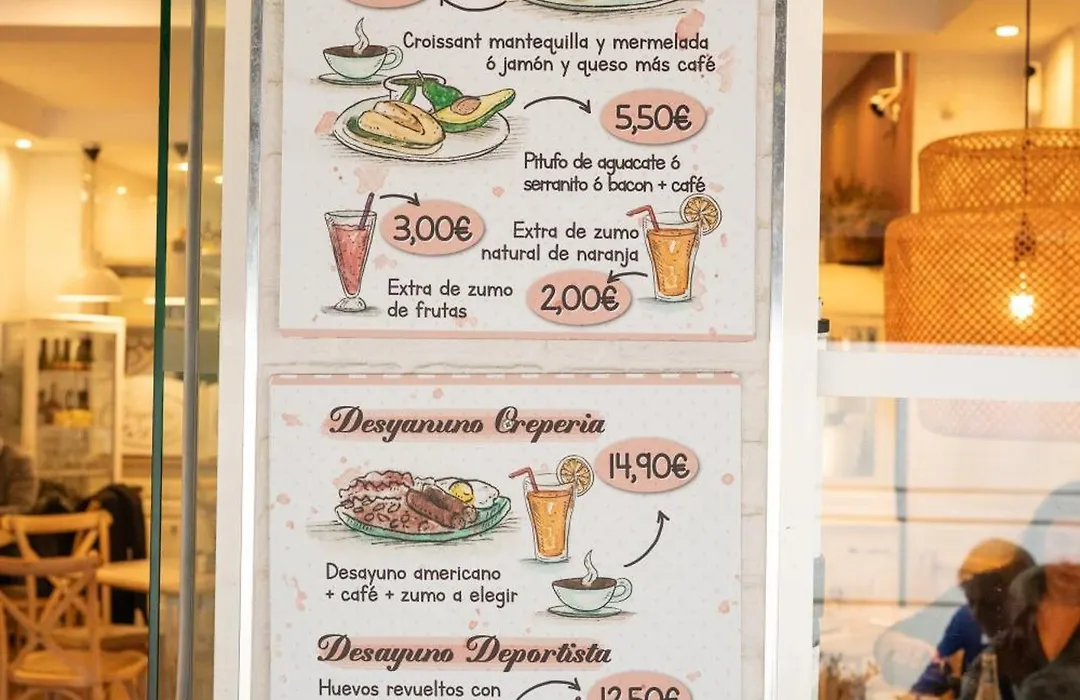 Croissant mantequilla y mermelada
ó jamón y queso más café
5,50€
Pitufo de aguacate ó
serranito ó bacon + café
3,00€
Extra de zumo
natural de naranja
Extra de zumo
de frutas
2,00€
Desyanuno Creperia
14,90€
Desayuno americano
+ café + zumo a elegir
Desayuno Deportista
Huevos revueltos con
12,50€